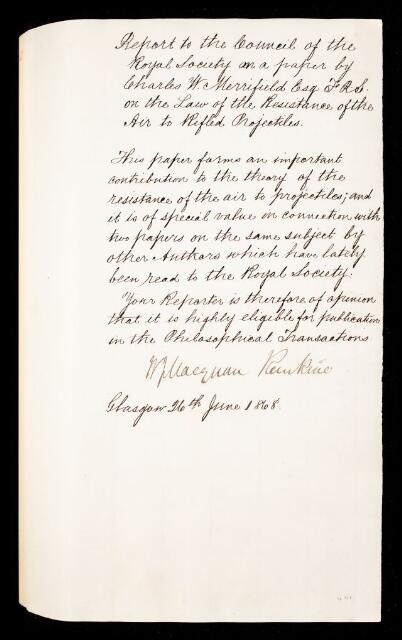 Report to the Council of the
Royal Society on a paper by
Charles W. Merrifield Esq F.R.S.
on the Law of the Resistance of the
Air to Rifled Projectiles.
This paper forms an important
contribution to the theory of the
resistance of the air to projectiles; and
it is of special value in connection with
two papers on the same subject by
other Authors which have lately
been read to the Royal Society.
Your Reporter is therefore of opinion
that it is highly eligible for publication
in the Philosophical Transactions
W J Macquorn Rankine
Glasgow 26th June 1868.